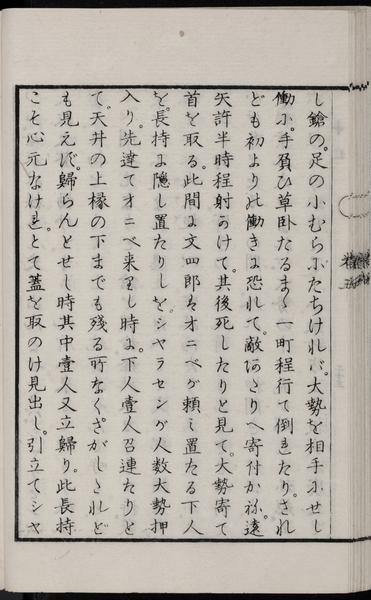 し鎗の。足の小むらぶたちけれバ。大勢を相手にせし
働ふ。手負ひ草臥たるまゝ一町程行て倒れたり。され
ども初よりの働きに恐れて。敵あたりへ寄付かね。遠
矢許半時程射かけて。其後死したりと見て。大勢寄て
首を取る。此間に文四郎ハオニベが頼ミ置たる下人
を。長持に隠し置たりしを。シヤラセシガ人数大勢押
入り。先達てオニベ来りし時に。下人壹人召連たりと
て。天井の上椽の下までも残る所なくさがしされど
も見えず。歸らんとせし時其中壹人又立歸り。此長持
こそ心元なけれとて蓋を取のけ見出し。引立てシヤ